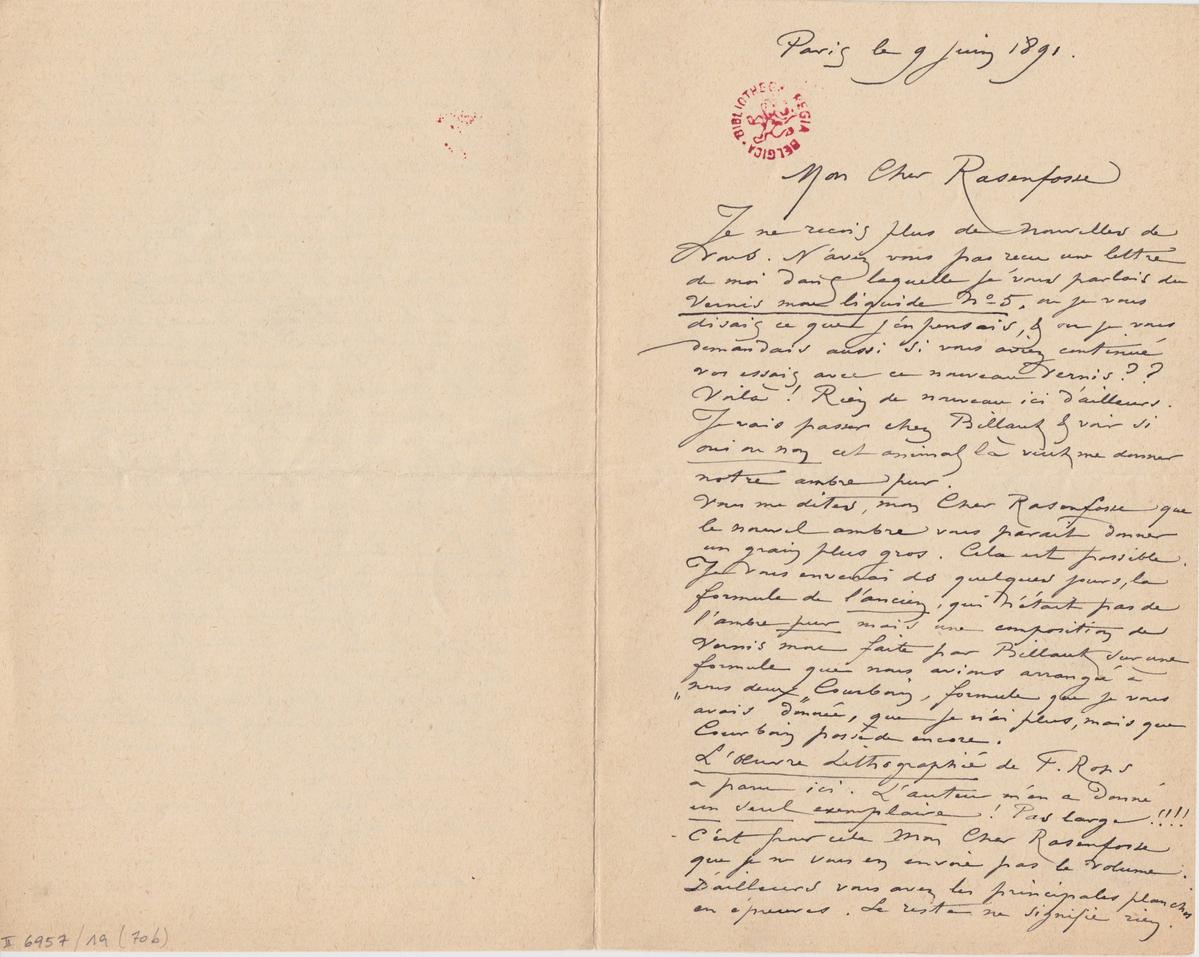 Paris le 9 juin 1891.
BIBLIOTHECA REGIA BELGICA
Mon Cher Rasenfosse
Je ne reçois plus de nouvelles de
vous. N'avez vous pas reçu une lettre
de moi dans laquelle je vous parlais du
Vernis mou liquide No 5, ou je vous
disais ce que j'en pensais, & ou je vous
demandais aussi si vous aviez continué
vos essais avec ce nouveau vernis ??
Voilà ! Rien de nouveau ici d'ailleurs.
Je vais passer chez Billault & voir si
oui ou non cet animal là veut me donner
notre ambre pur.
Vous me dites, mon Cher Rasenfosse que
le nouvel ambre vous parait donner
un grain plus gros. Cela est possible.
Je vous enverrai ds quelques jours, la
formule de l'ancien, qui n'était pas de
l'ambre pur mais une composition de
Vernis mou faite par Billault sur une
formule que nous avions arrangé à
"nous deux" Courboin, formule que je vous
avais donnée, que je n'ai plus, mais que
Courboin possède encore.
L'Œuvre Lithographié de F. Rops
a paru ici. L'auteur m'en a Donné
un seul exemplaire ! Pas large !!!!
C'est pour cela Mon Cher Rasenfosse
que je ne vous en envoie pas le volume.
D'ailleurs vous avez les principales planches
en épreuves. Le reste ne signifie rien.
II 6957/19 (70b)